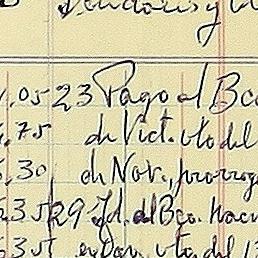 Deudores y
.05 23 Pago al Bco
.75 de Vict. vto del
.30 de Nov., prorrog
.35 29 Id. al Bco. Nac
.35 vto. del 1